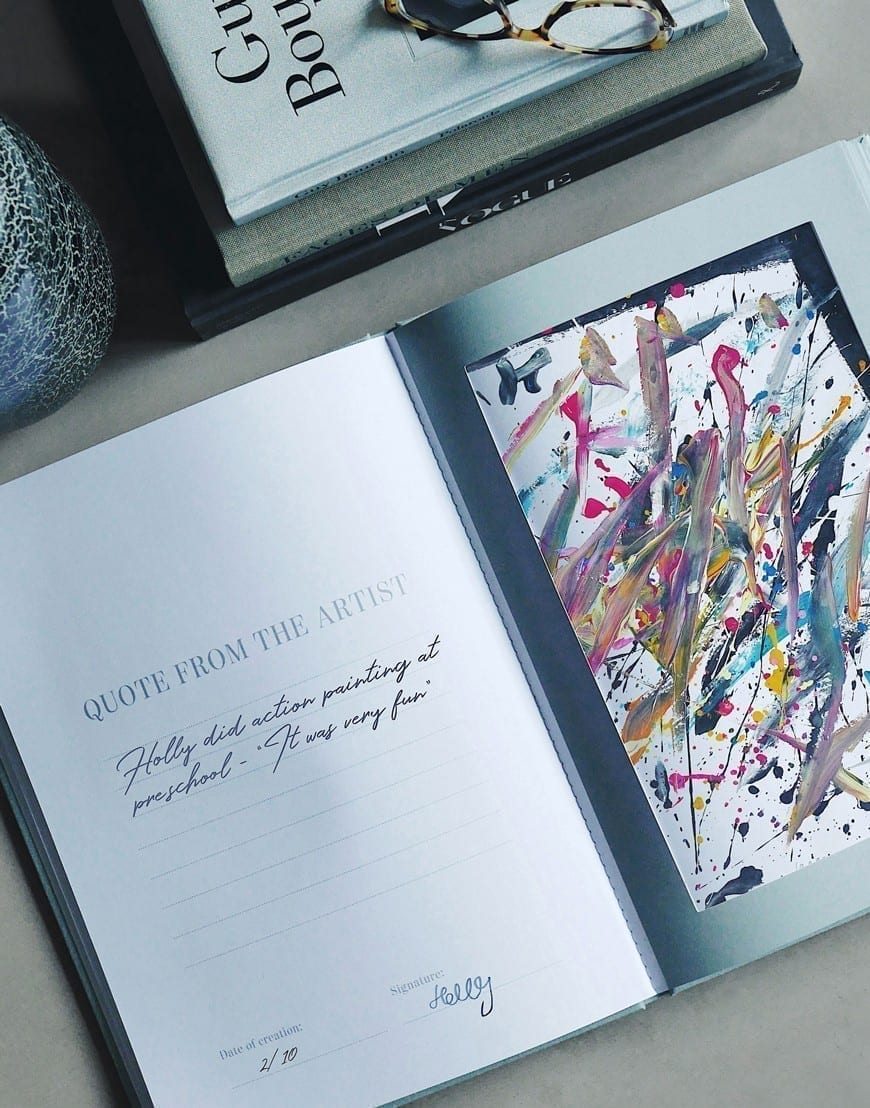 Gu
Bou
Guy Bourdin
FACES OF MEN
VOGUE
QUOTE FROM THE ARTIST
Holly did action painting at
preschool - "It was very fun"
Signature:
Holly
Date of creation:
2/10